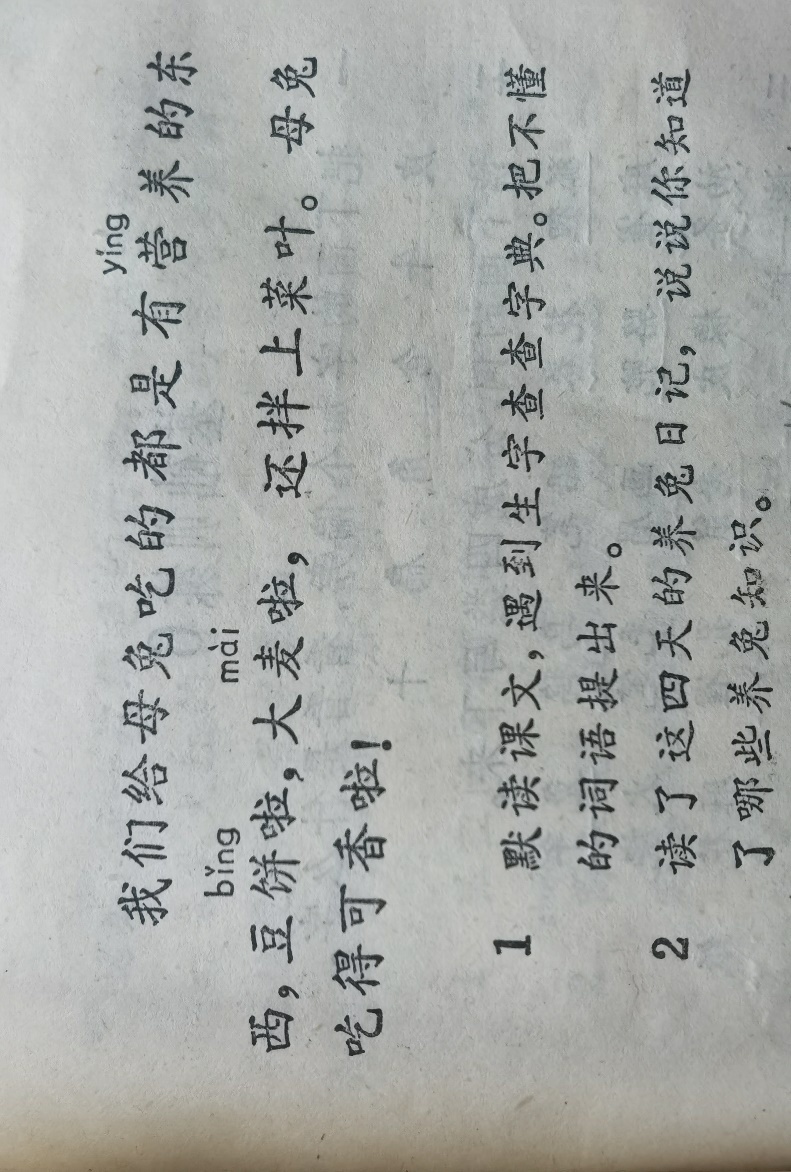 yíng
我们给母兔吃的都是有营养的东
bǐng mài
西，豆饼啦，大麦啦，还拌上菜叶。母兔
吃得可香啦！
1 默读课文，遇到生字查查字典。把不懂
的词语提出来。
2 读了这四天的养兔日记，说说你知道
了哪些养兔知识。